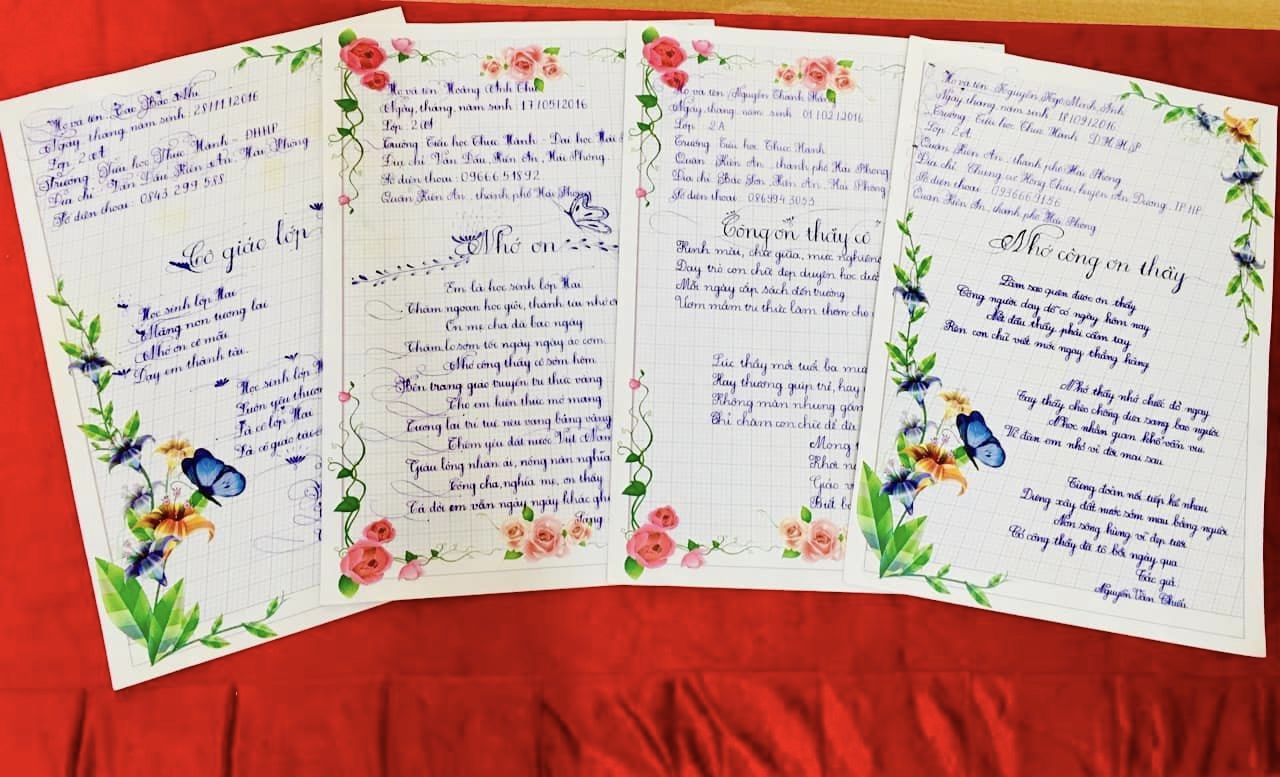 Họ và tên: Cao Bảo Nhi
Ngày, tháng, năm sinh: 28/11/2016
Lớp: 2A
Trường: Tiểu học Thực Hành - ĐHHP
Địa chỉ: Văn Đẩu, Kiến An, Hải Phòng
Số điện thoại: 0843 299 588
Cô giáo lớp
Học sinh lớp Hai
Măng non tương lai
Nhớ ơn cô mãi
Dạy em thành tài.
Học sinh lớp
Luôn yêu thương
Là cô lớp Hai
Là cô giáo
Họ và tên: Hoàng Anh Thư
Ngày, tháng, năm sinh: 17/05/2016
Lớp: 2A1
Trường Tiểu học Thực Hành - Đại học Hải
Địa chỉ: Văn Đẩu, Kiến An, Hải Phòng
Số điện thoại: 0966651892
Quận Kiến An, thành phố Hải Phòng
Nhớ ơn
Em là học sinh lớp Hai
Chăm ngoan học giỏi, thành tài nhớ ơn
Ơn mẹ cha đã bao ngày
Chăm lo sớm tối ngày ngày áo cơm.
Nhớ công thầy cô sớm hôm
Bên trang giáo truyền tri thức vàng
Cho em luôn thức mơ màng
Tương lai trí tuệ nêu vang bảng vàng
Thêm yêu đất nước Việt Nam
Giàu lòng nhân ái, nồng nàn nghĩa
Công cha, nghĩa mẹ, ơn thầy
Cả đời em vẫn ngày ngày khắc ghi
Họ và tên: Nguyễn Thanh Hằng
Ngày, tháng, năm sinh: 01/02/2016
Lớp: 2A
Trường Tiểu học Thực Hành
Quận Kiến An, thành phố Hải Phòng
Địa chỉ: Bắc Sơn, Kiến An, Hải Phòng
Số điện thoại: 086994 3055
Công ơn thầy cô
Kính màu, chữ giữa, mực nghiêng
Dạy trò con chữ đẹp duyên học
Mỗi ngày cắp sách đến trường
Ươm mầm tri thức làm thơm cho
Lúc thầy mới tuổi ba mươi
Hay thương giúp trẻ, hay
Không màn nhưng gấm
Chỉ chăm con chữ để
Mong
Khơi
Giáo
Bút
Họ và tên: Nguyễn Ngọc Minh Anh
Ngày tháng năm sinh: 18/09/2016
Lớp: 2A
Trường: Tiểu học Thực Hành ĐHHP
Quận Kiến An, thành phố Hải Phòng
Địa chỉ: Chung cư Hồng Thái, huyện An Dương, TP HP
Số điện thoại: 0936669156
Quận Kiến An, thành phố Hải Phòng
Nhớ công ơn thầy
Làm sao quên được ơn thầy
Công người dạy dỗ có ngày hôm nay
Nét đầu thầy phải cầm tay
Rèn con chữ viết mới ngay thẳng hàng
Nhớ thầy nhớ chiếc đò ngang
Tay thầy chèo chống đưa sang bao người
Nhọc nhằn gian khổ vẫn vui
Vì đàn em nhỏ vì đời mai sau
Từng đoàn nối tiếp kề nhau
Dựng xây đất nước sớm mau bằng người
Non sông hùng vĩ đẹp tươi
Có công thầy đã tô bồi ngày qua
Tác giả:
Nguyễn Văn Thiều